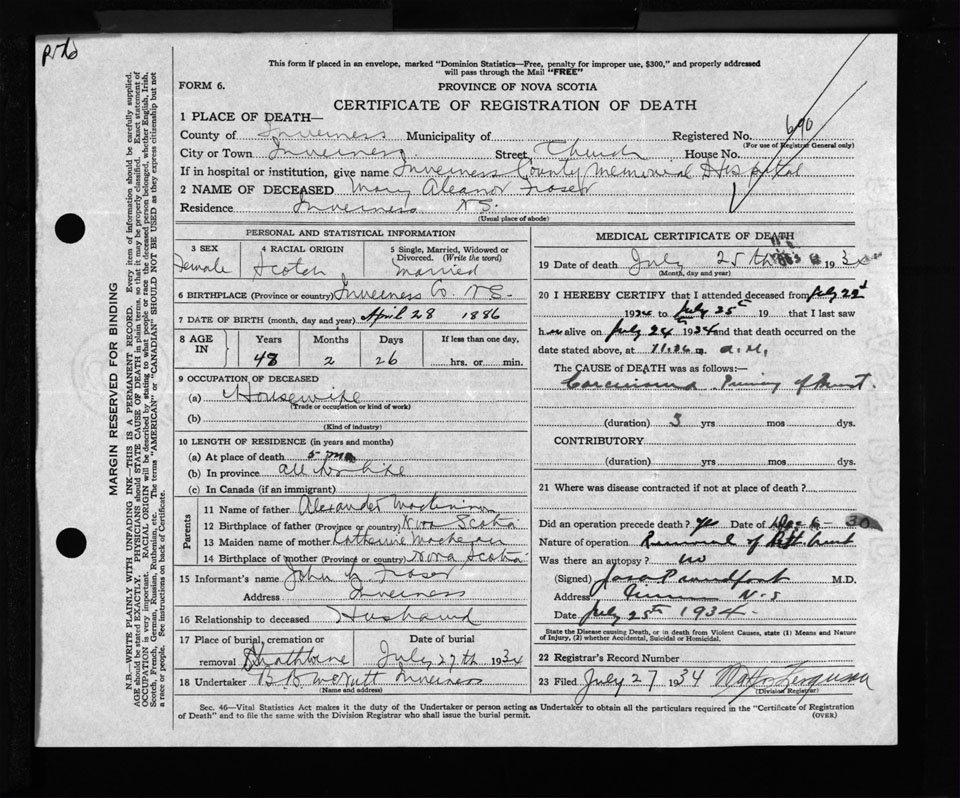 This form if placed in an envelope, marked "Dominion Statistics—Free, penalty for improper use, $300," and properly addressed
will pass through the Mail "FREE"
FORM 6.
PROVINCE OF NOVA SCOTIA
CERTIFICATE OF REGISTRATION OF DEATH
MARGIN RESERVED FOR BINDING
N.B.—WRITE PLAINLY WITH UNFADING INK—THIS IS A PERMANENT RECORD. Every item of information should be carefully supplied.
AGE should be stated EXACTLY. PHYSICIANS should STATE CAUSE OF DEATH in plain terms, so that it may be properly classified. Exact statement of
OCCUPATION is very important. RACIAL ORIGIN will be described by stating to what people or race the deceased person belonged, whether English, Irish,
Scotch, French, German, Russian, Ruthenian, etc. The terms "AMERICAN" or "CANADIAN" SHOULD NOT BE USED as they express citizenship but not
a race or people. See instructions on back of Certificate.
1 PLACE OF DEATH—
County of Inverness Municipality of Registered No. 690
(For use of Registrar General only)
City or Town Inverness Street Church House No.
If in hospital or institution, give name Inverness County Memorial Hospital
2 NAME OF DECEASED Mary Aleanor Fraser
Residence Inverness N.S.
(Usual place of abode)
PERSONAL AND STATISTICAL INFORMATION
3 SEX 4 RACIAL ORIGIN 5 Single, Married, Widowed or
Divorced. (Write the word)
Female Scotch Married
6 BIRTHPLACE (Province or country) Inverness Co. N.S.
7 DATE OF BIRTH (month, day and year) April 28 1886
8 AGE IN Years Months Days If less than one day,
48 2 26 hrs. or min.
9 OCCUPATION OF DECEASED
(a) Housewife
(Trade or occupation or kind of work)
(b)
(Kind of industry)
10 LENGTH OF RESIDENCE (in years and months)
(a) At place of death 5
(b) In province all her life
(c) In Canada (if an immigrant)
Parents
11 Name of father Alexander
12 Birthplace of father (Province or country) Nova Scotia
13 Maiden name of mother Katherine
14 Birthplace of mother (Province or country) Nova Scotia
15 Informant's name John Fraser
Address Inverness
16 Relationship to deceased Husband
17 Place of burial, cremation or Date of burial
removal Strathlorne July 27th 1934
18 Undertaker B.B. McNutt Inverness
(Name and address)
MEDICAL CERTIFICATE OF DEATH
19 Date of death July 25th 1934
(Month, day and year)
20 I HEREBY CERTIFY that I attended deceased from July 22nd
1934 to July 25th 19 that I last saw
her alive on July 24th 1934 and that death occurred on the
date stated above, at a.m.
The CAUSE of DEATH was as follows:—
Carcinoma Primary of Breast.
(duration) yrs mos dys.
CONTRIBUTORY
(duration) yrs. mos. dys.
21 Where was disease contracted if not at place of death?
Did an operation precede death? yes Date of Dec 6 - 30
Nature of operation Removal of left breast
Was there an autopsy? no
(Signed) M.D.
Address N.S
Date July 25th 1934
State the Disease causing Death, or in death from Violent Causes, state (1) Means and Nature
of Injury, (2) whether Accidental, Suicidal or Homicidal.
22 Registrar's Record Number
23 Filed July 27 1934 Ferguson
(Division Registrar)
Sec. 46—Vital Statistics Act makes it the duty of the Undertaker or person acting as Undertaker to obtain all the particulars required in the "Certificate of Registration
of Death" and to file the same with the Division Registrar who shall issue the burial permit. (OVER)